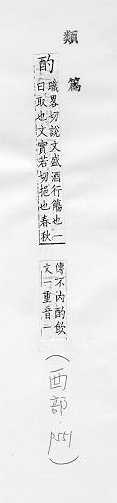 類篇
酌
職畧切説文盛酒行觴也一
曰取也又實若切挹也春秋
傳不内酌飲
文一重音一
(酉部 p551)